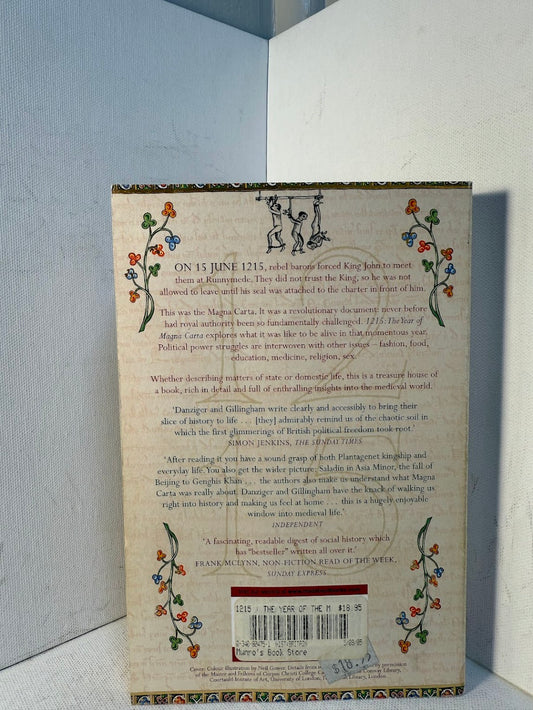 ON 15 JUNE 1215, rebel barons forced King John to meet
them at Runnymede. They did not trust the King, so he was not
allowed to leave until his seal was attached to the charter in front of him.
This was the Magna Carta. It was a revolutionary document: never before
had royal authority been so fundamentally challenged. 1215: The Year of
Magna Carta explores what it was like to be alive in that momentous year.
Political power struggles are interwoven with other issues – fashion, food,
education, medicine, religion, sex.
Whether describing matters of state or domestic life, this is a treasure house of
a book, rich in detail and full of enthralling insights into the medieval world.
'Danziger and Gillingham write clearly and accessibly to bring their
slice of history to life . . . [they] admirably remind us of the chaotic soil in
which the first glimmerings of British political freedom took root.'
SIMON JENKINS, THE SUNDAY TIMES
'After reading it you have a sound grasp of both Plantagenet kingship and
everyday life. You also get the wider picture: Saladin in Asia Minor, the fall of
Beijing to Genghis Khan . . . the authors also make us understand what Magna
Carta was really about. Danziger and Gillingham have the knack of walking us
right into history and making us feel at home . . . this is a hugely enjoyable
window into medieval life.'
INDEPENDENT
'A fascinating, readable digest of social history which
has "bestseller" written all over it.'
FRANK MCLYNN, NON-FICTION READ OF THE WEEK,
SUNDAY EXPRESS
1215 : THE YEAR OF THE M $18.95
0-340-82475-1 HIST-BRITAIN
Munro's Book Store
$18.95
Cover: Colour illustration by Neil Gower. Details from
of the Master and Fellows of Corpus Christi College
Conway Library,
Courtauld Institute of Art, University of London,
Library, London.